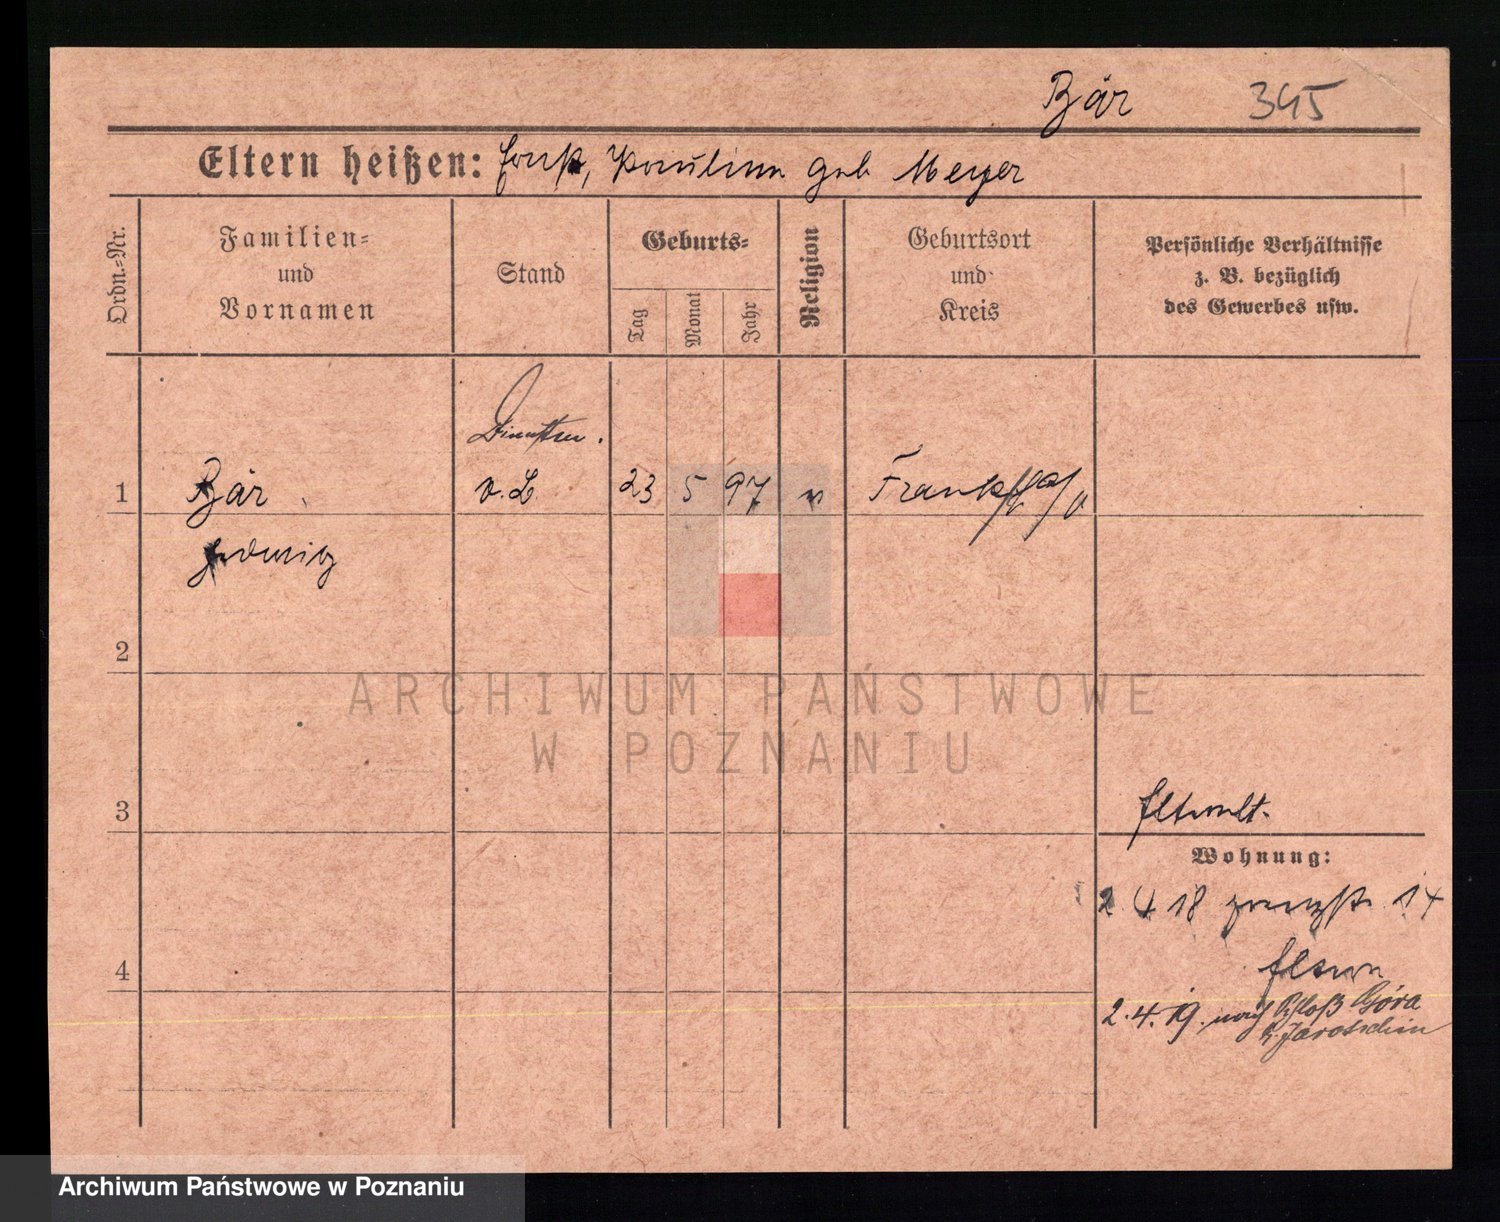 Bär 345
Eltern heißen: Ernst, Paulina geb Meyer
Ordn.-Nr.
Familien-
und
Vornamen
Stand
Geburts-
Tag
Monat
Jahr
Religion
Geburtsort
und
Kreis
Persönliche Verhältnisse
z. B. bezüglich
des Gewerbes usw.
1 Bär v. L 23 5 97 Frankf a/O
Hedwig
2
ARCHIWUM PAŃSTWOWE
W POZNANIU
3
Wohnung:
2. 4 18 14
4
2.4.19. nach Schloß Góra
Jarotschin
Archiwum Państwowe w Poznaniu